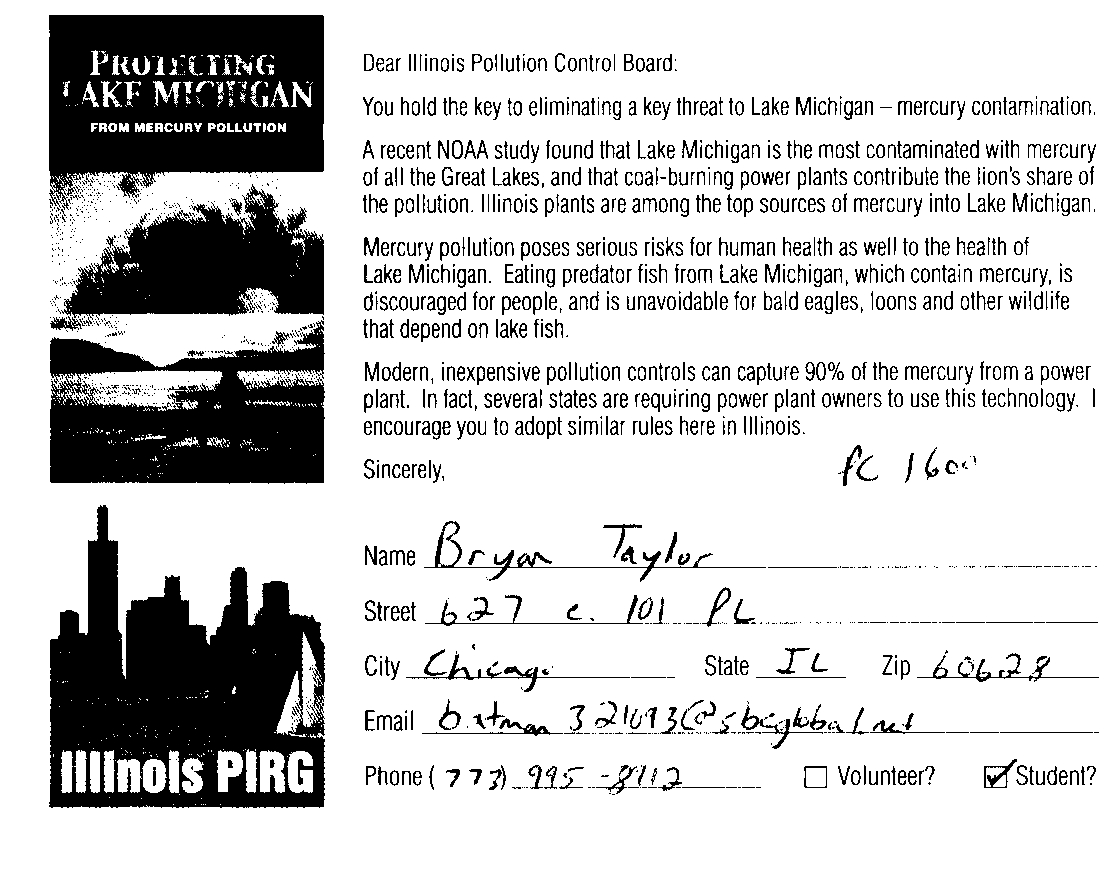 PROTECTING
LAKE MICHIGAN
FROM MERCURY POLLUTION
Dear Illinois Pollution Control Board:
You hold the key to eliminating a key threat to Lake Michigan – mercury contamination.
A recent NOAA study found that Lake Michigan is the most contaminated with mercury
of all the Great Lakes, and that coal-burning power plants contribute the lion's share of
the pollution. Illinois plants are among the top sources of mercury into Lake Michigan.
Mercury pollution poses serious risks for human health as well to the health of
Lake Michigan. Eating predator fish from Lake Michigan, which contain mercury, is
discouraged for people, and is unavoidable for bald eagles, loons and other wildlife
that depend on lake fish.
Modern, inexpensive pollution controls can capture 90% of the mercury from a power
plant. In fact, several states are requiring power plant owners to use this technology. I
encourage you to adopt similar rules here in Illinois.
Sincerely,
PC 1600
Name Bryan Taylor
Street 627 e. 101 PL
City Chicago State IL Zip 60628
Email
Phone (773) 995-8712
Volunteer? Student?
Illinois PIRG